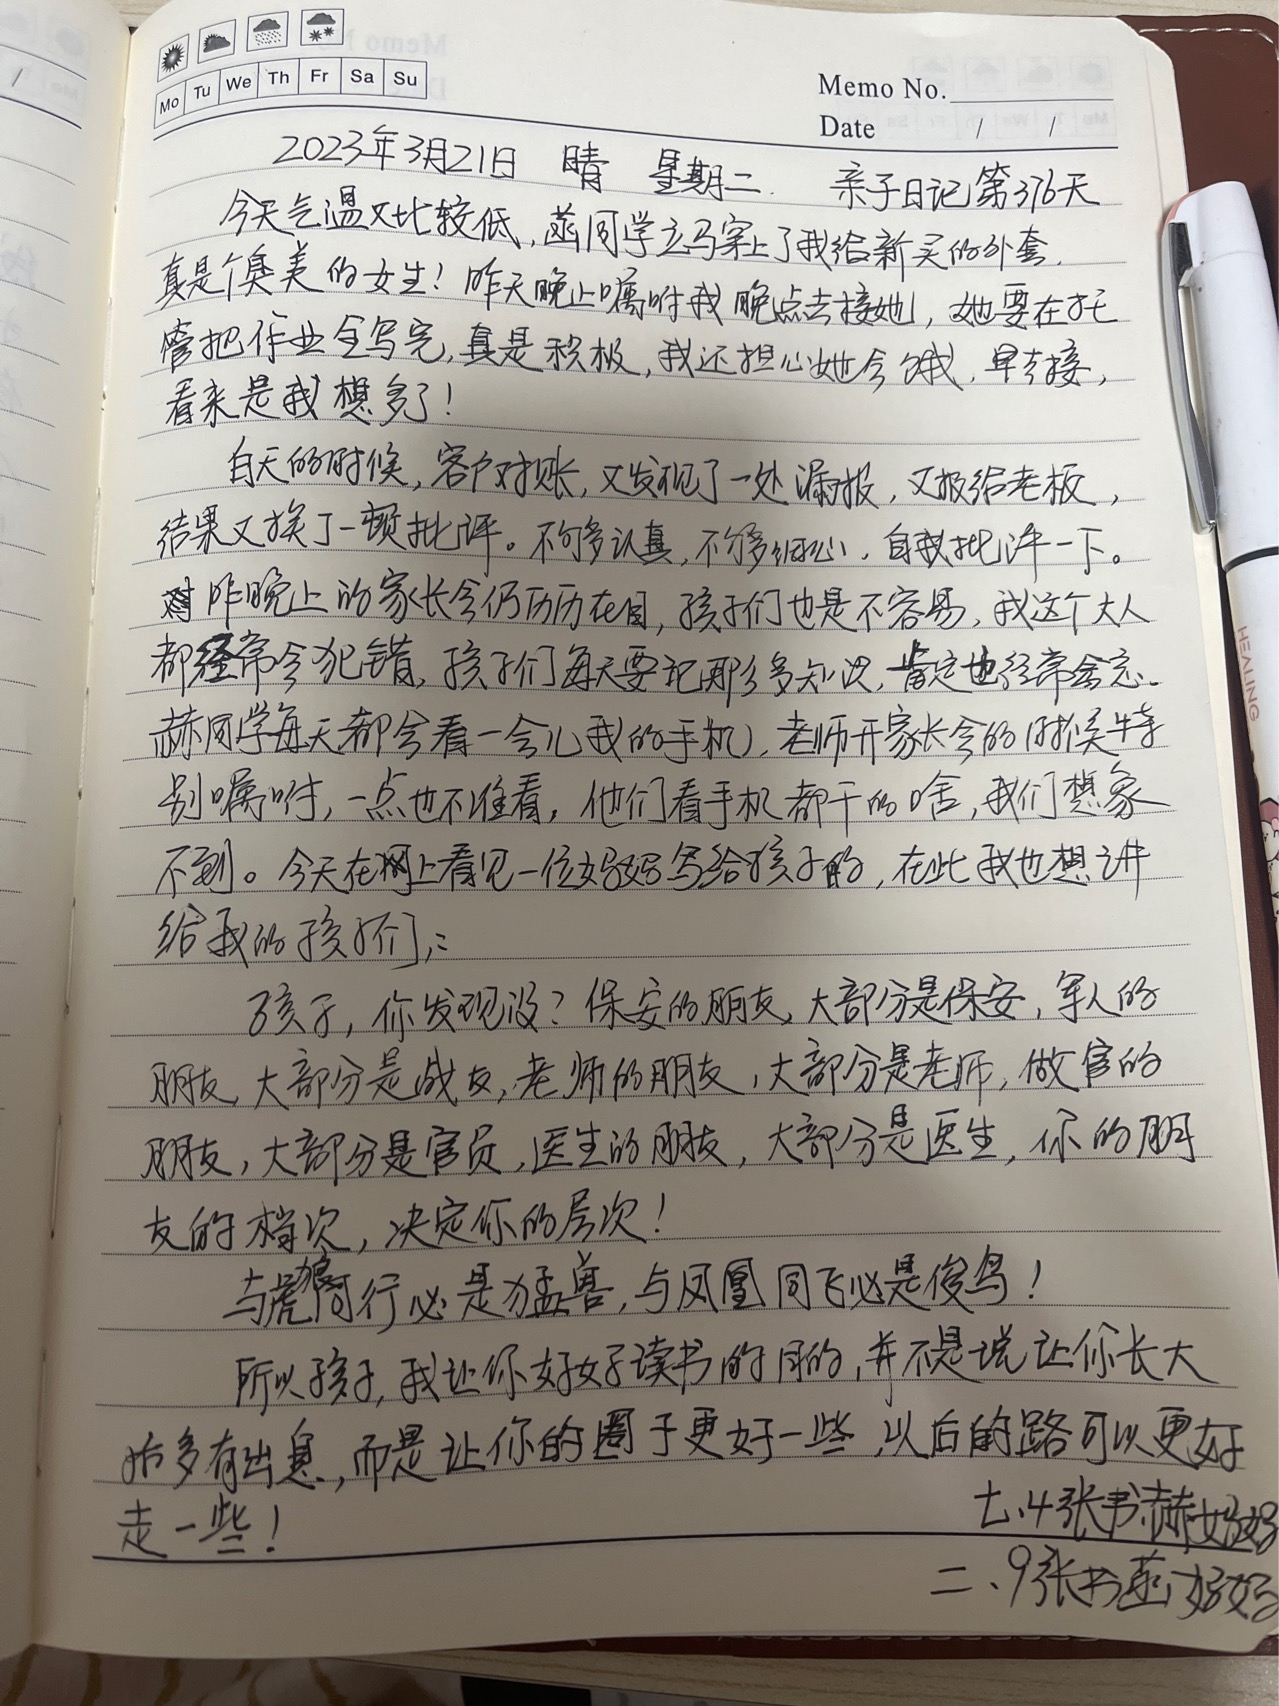 Mo Tu We Th Fr Sa Su
Memo No.
Date / /
2023年3月21日 晴 星期二. 亲子日记第376天
今天气温又比较低,菡同学立马穿上了我给新买的外套.
真是个臭美的女生!昨天晚上嘱咐我晚点去接她,她要在托
管把作业全写完,真是积极,我还担心她会饿,早去接,
看来是我想多了!
白天的时候,客户对账,又发现了一处漏报,又报给老板,
结果又挨了一顿批评。不够多认真,不够多细心,自我批评一下。
昨晚上的家长会仍历历在目,孩子们也是不容易,我这个大人
都经常会犯错,孩子们每天要记那么多知识,肯定也经常会忘.
赫同学每天都会看一会儿我的手机,老师开家长会的时候特
别嘱咐,一点也不准看,他们看手机都干的啥,我们想象
不到。今天在网上看见一位妈妈写给孩子的,在此我也想讲
给我的孩子们:
孩子,你发现没?保安的朋友,大部分是保安,军人的
朋友,大部分是战友,老师的朋友,大部分是老师,做官的
朋友,大部分是官员,医生的朋友,大部分是医生,你的朋
友的档次,决定你的层次!
与虎狼同行必是猛兽,与凤凰同飞必是俊鸟!
所以孩子,我让你好好读书的目的,并不是说让你长大
后多有出息,而是让你的圈子更好一些,以后的路可以更好
走一些!
七.4张书赫妈妈
二.9张书菡妈妈
HEALING